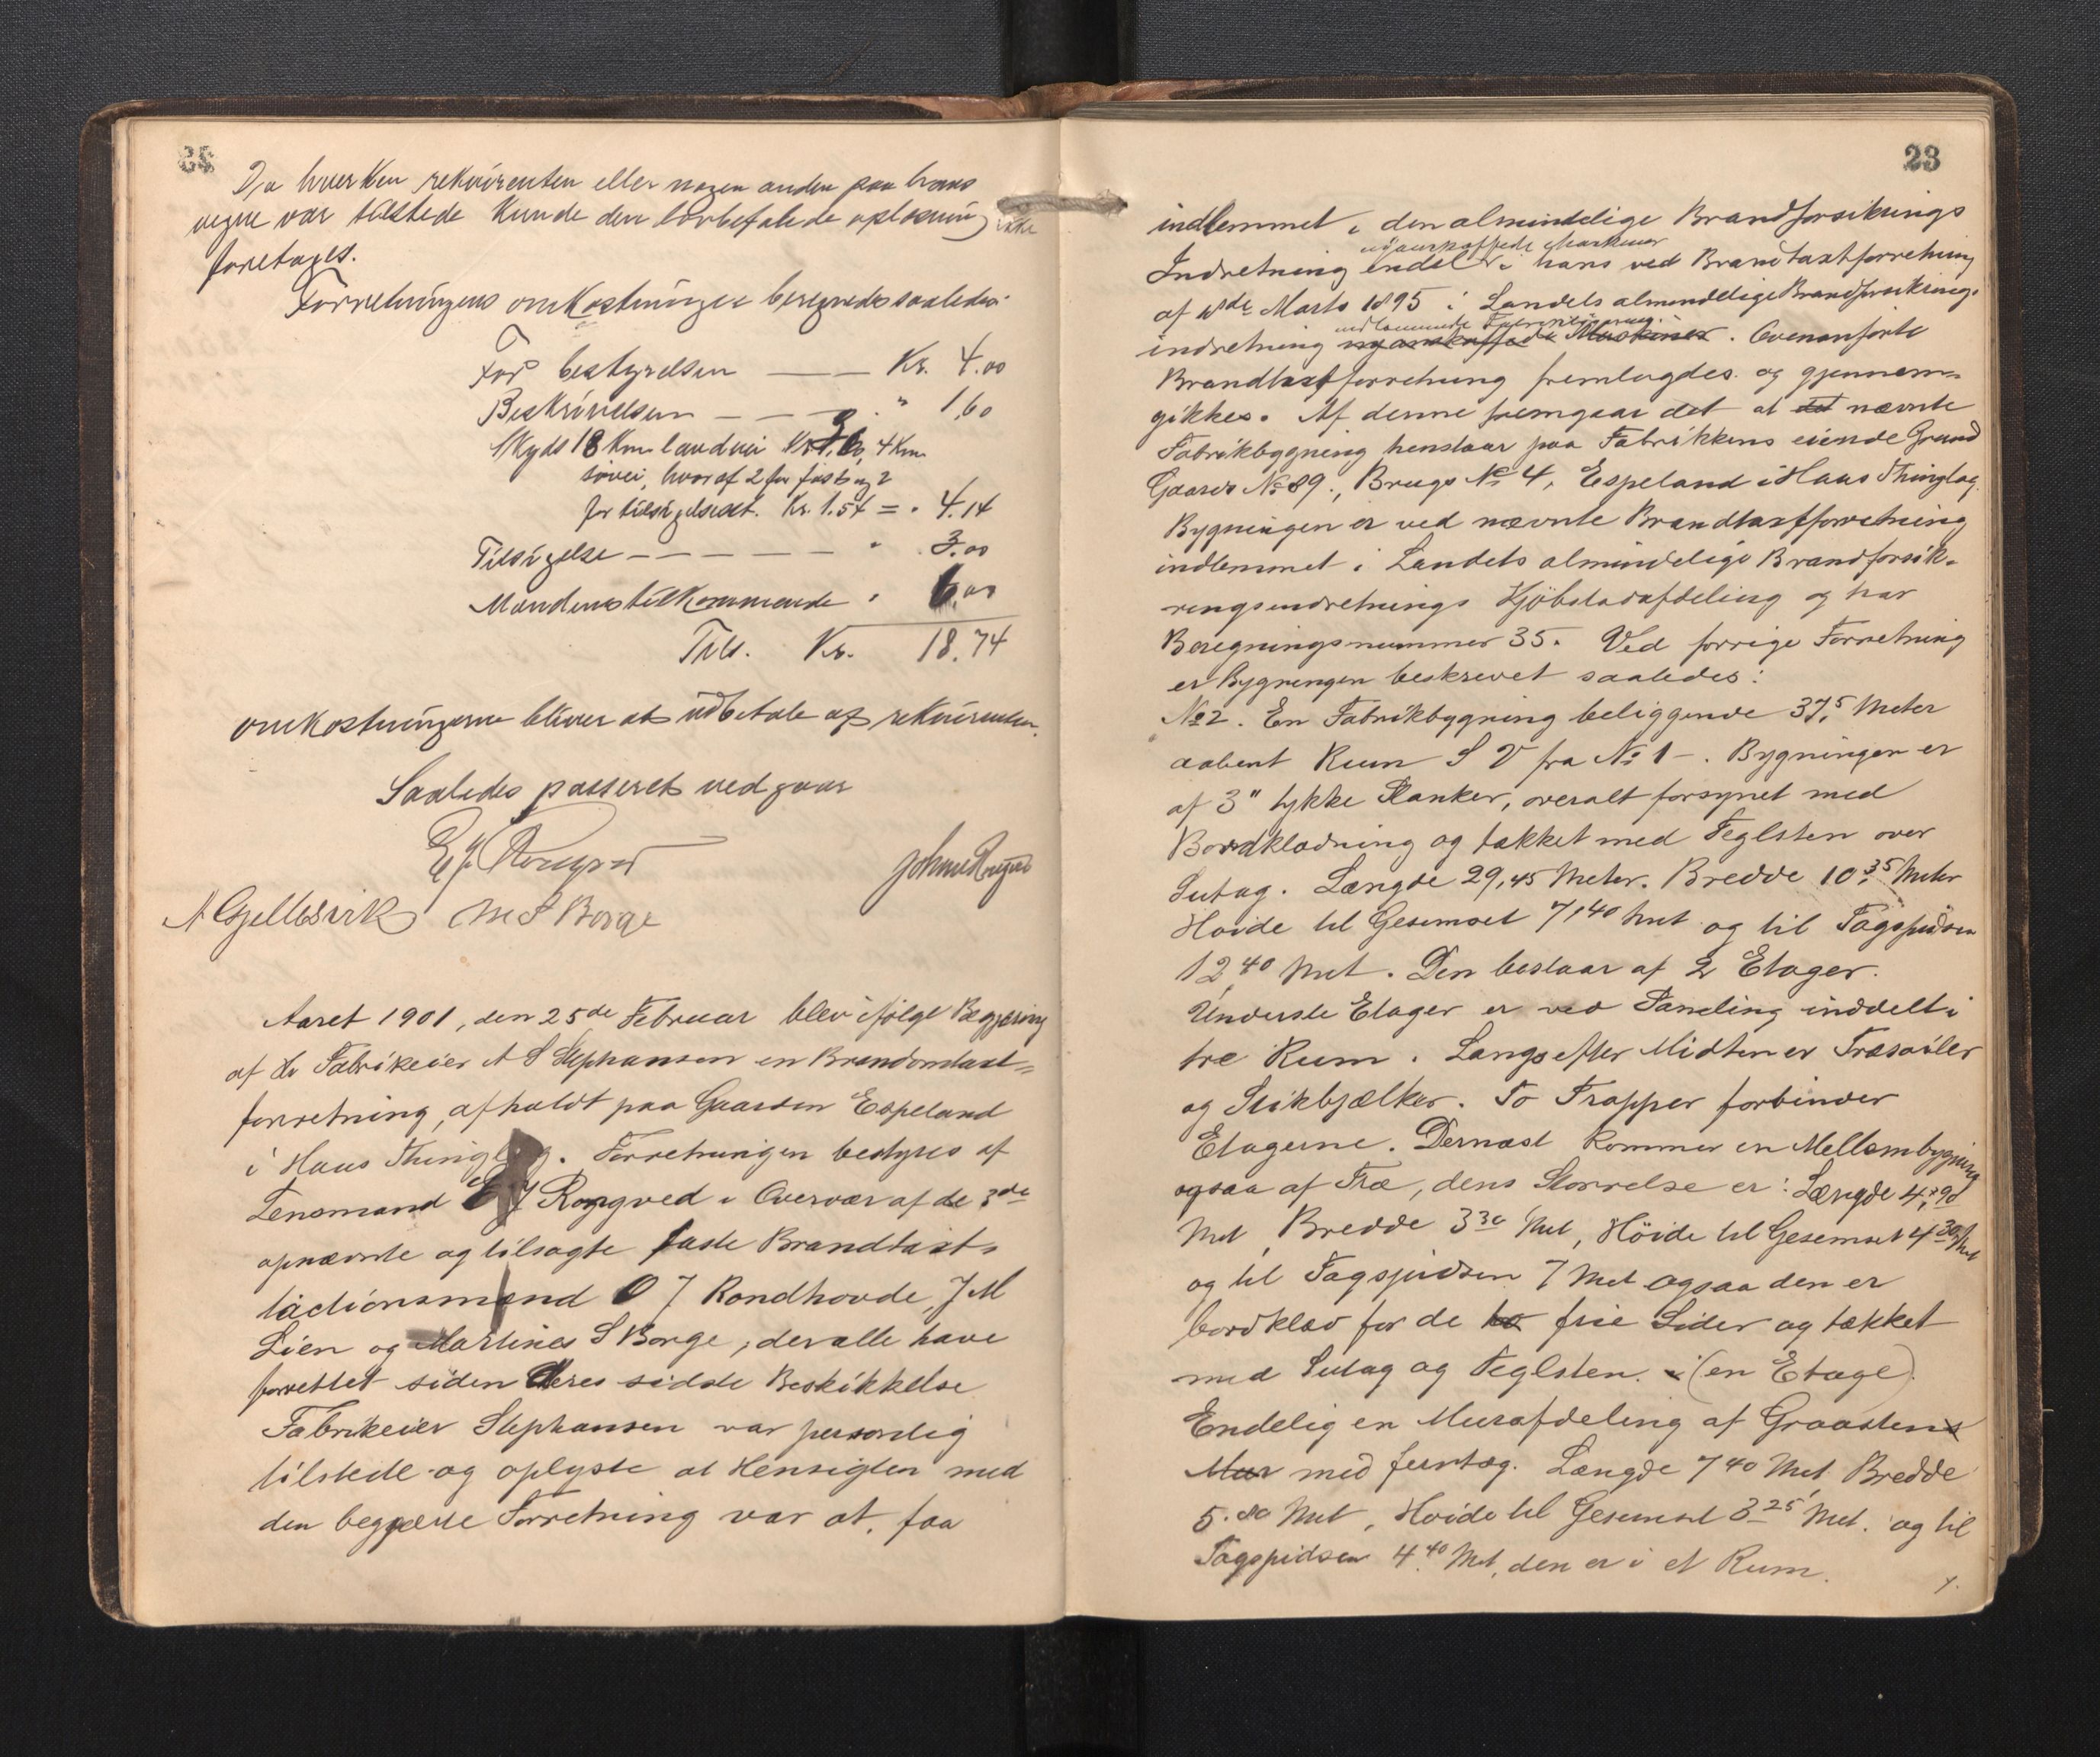 Da hverken rekvirenten eller nogen anden paa hans
vegne var tilstede kunde den lovbefalede oplæsning ikke
foretages.
Forretningens omkostninger beregnedes saaledes:
For bestyrelsen — — Kr. 4.00
Beskrivelsen — — — " 1,60
Skyds 18 Km. landvei Kr. 4 Km
søvei, hvoraf 2 for
for tilsigelsen. Kr. 1.54 = " 4.14
Tilsigelse — — — — — " 3.00
Mændenes tilkommende " 6.00
Tils. Kr. 18.74
omkostningerne bliver at udbetale af rekvirenten.
Saaledes passeret vedgaar
A Gjellesvik M S Borge
Aaret 1901, den 25de Februar blev ifølge Begjæring
af Hr Fabrikeier A S Stephansen en Brandomtaxt=
forretning, afholdt paa Gaarden Espeland
i Haus Thinglag. Forretningen bestyres af
Lensmand E J Rongved i Overvær af de 3de
opnævnte og tilsagte faste Brandtaxt-
tactionsmænd O J Rondhovde, J M
Lien og Martines S Borge, der alle have
forrettet siden deres sidste Beskikkelse
Fabrikeier Stephansen var personlig
tilstede og oplyste at Hensigten med
den begjærte Forretning var at, faa
23
indlemmet i den almindelige Brandforsikrings
nyanskaffede Maskiner
Indretning endel i hans ved Brandtaxtforretning
af Marts 1895 i Landets almindelige Brandforsikrings
indlemmede Fabrikbygning.
indretning nyanskaffede Maskiner. Ovenanførte
Brandtaxtforretning fremlagdes og gjennem=
gikkes. Af denne fremgaar det at det nævnte
Fabrikbygning henstaar paa Fabrikkens eiende Grund
Gaards No 89., Brugs No 4, Espeland i Haus Thinglag.
Bygningen er ved nævnte Brandtaxtforretning
indlemmet i Landets almindelige Brandforsik-
ringsindretnings Kjøbstadafdeling og har
Beregningsnummer 35. Ved forrige Forretning
er Bygningen beskrevet saaledes:
No 2. En Fabrikbygning beliggende 37,5 Meter
aabent Rum S V fra No 1 –. Bygningen er
af 3" tykke Planker, overalt forsynet med
Bordklædning og tækket med Teglsten over
Sutag. Længde 29,45 Meter. Bredde 10,35 Meter
Høide til Gesemset 7,40 Met og til Tagspidsen
12,40 Met. Den bestaar af 2 Etager.
Underste Etager er ved Paneling inddelt i
tre Rum. Langs efter Midten er Træsøiler
og Stikbjælker. To Trapper forbinder
Etagerne. Dernæst kommer en Mellembygning
ogsaa af Træ, dens Størrelse er: Længde 4,90
Met, Bredde 3,30 Met, Høide til Gesemset 4,30 Met
og til Tagspidsen 7 Met ogsaa den er
bordklæd for de to frie Sider og tækket
med Sutag og Teglsten. i (en Etage).
Endelig en Murafdeling af Graastens
Mur med Jerntag. Længde 7,40 Met Bredde
5.80 Met, Høide til Gesemset 3,25 Met. og til
Tagspidsen 4,40 Met, den er i et Rum.